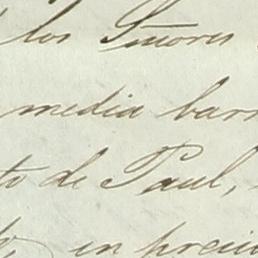 los Señores
media barr
to de Paul,
en preci